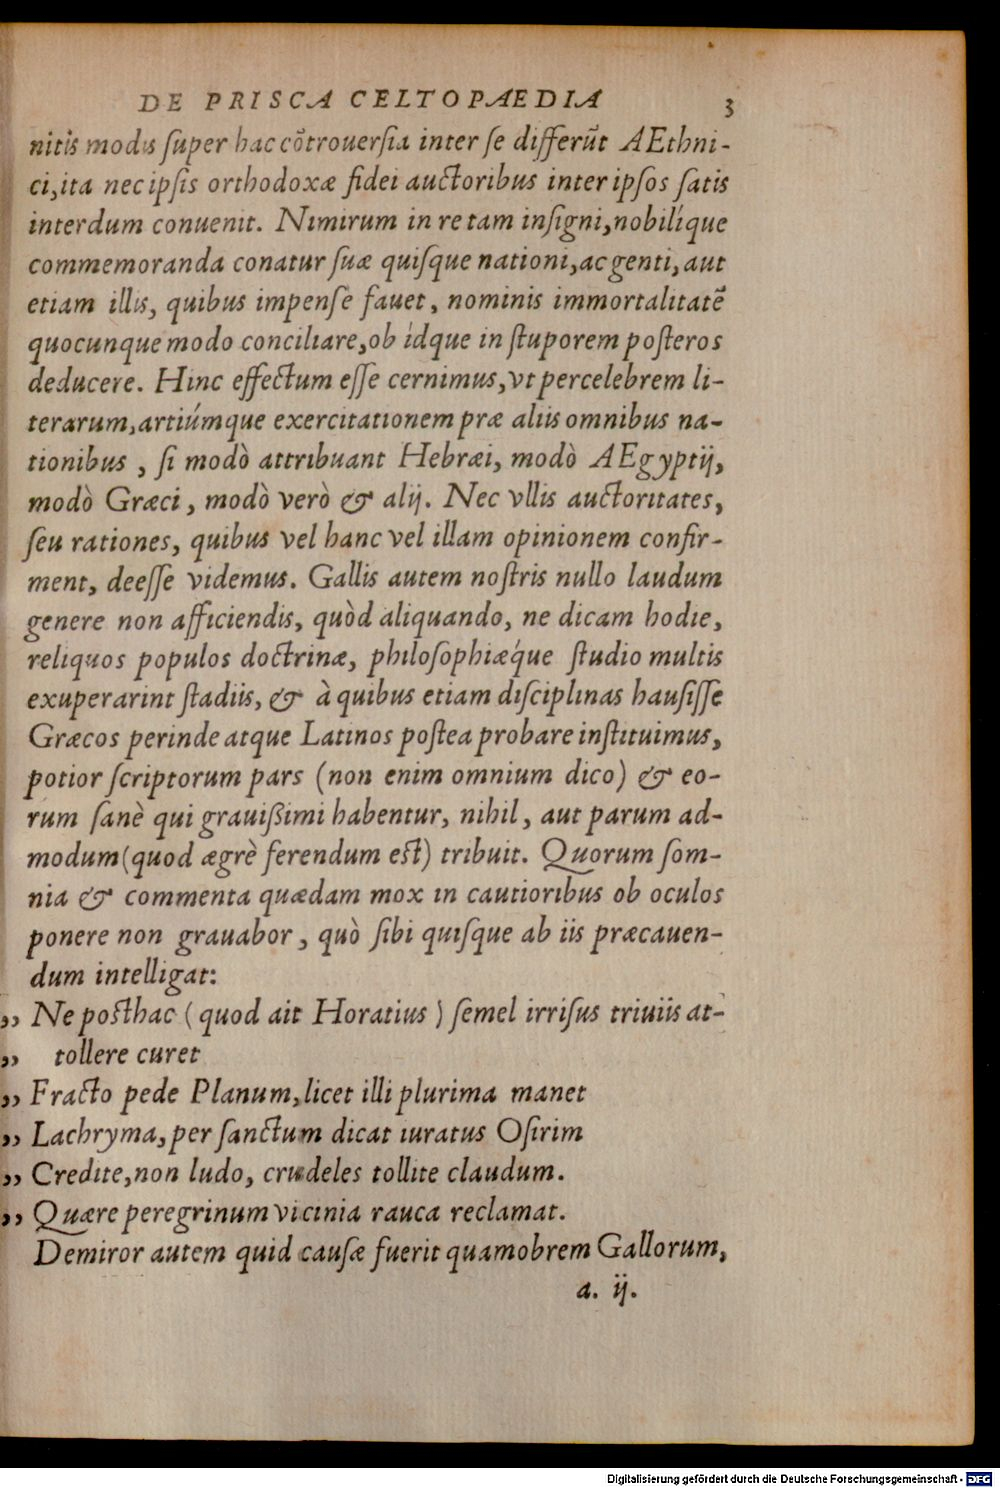 DE PRISCA CELTOPAEDIA 3
nitis modis ſuper hac cõtrouerſia inter ſe differũt AEthni-
ci, ita nec ipſis orthodoxæ fidei auctoribus inter ipſos ſatis
interdum conuenit. Nimirum in re tam inſigni, nobilíque
commemoranda conatur ſuæ quiſque nationi, ac genti, aut
etiam illis, quibus impenſè fauet, nominis immortalitatẽ
quocunque modo conciliare, ob ídque in ſtuporem poſteros
deducere. Hinc effectum eſſe cernimus, vt percelebrem li-
terarum, artiúmque exercitationem præ aliis omnibus na-
tionibus, ſi modò attribuant Hebræi, modò AEgyptij,
modò Græci, modò verò & alij. Nec vllis auctoritates,
ſeu rationes, quibus vel hanc vel illam opinionem confir-
ment, deeſſe videmus. Gallis autem noſtris nullo laudum
genere non afficiendis, quòd aliquando, ne dicam hodie,
reliquos populos doctrinæ, philoſophiǽque ſtudio multis
exuperarint ſtadiis, & à quibus etiam diſciplinas hauſiſſe
Græcos perinde atque Latinos poſtea probare inſtituimus,
potior ſcriptorum pars (non enim omnium dico) & eo-
rum ſanè qui grauißimi habentur, nihil, aut parum ad-
modum (quod ægrè ferendum eſt) tribuit. Quorum ſom-
nia & commenta quædam mox in cautioribus ob oculos
ponere non grauabor, quò ſibi quiſque ab iis præcauen-
dum intelligat:
,, Ne poſthac (quod ait Horatius) ſemel irriſus triuiis at-
,, tollere curet
,, Fracto pede Planum, licet illi plurima manet
,, Lachryma, per ſanctum dicat iuratus Oſirim
,, Credite, non ludo, crudeles tollite claudum.
,, Quære peregrinum vicinia rauca reclamat.
Demiror autem quid cauſæ fuerit quamobrem Gallorum,
a. ij.
Digitalisierung gefördert durch die Deutsche Forschungsgemeinschaft - DFG